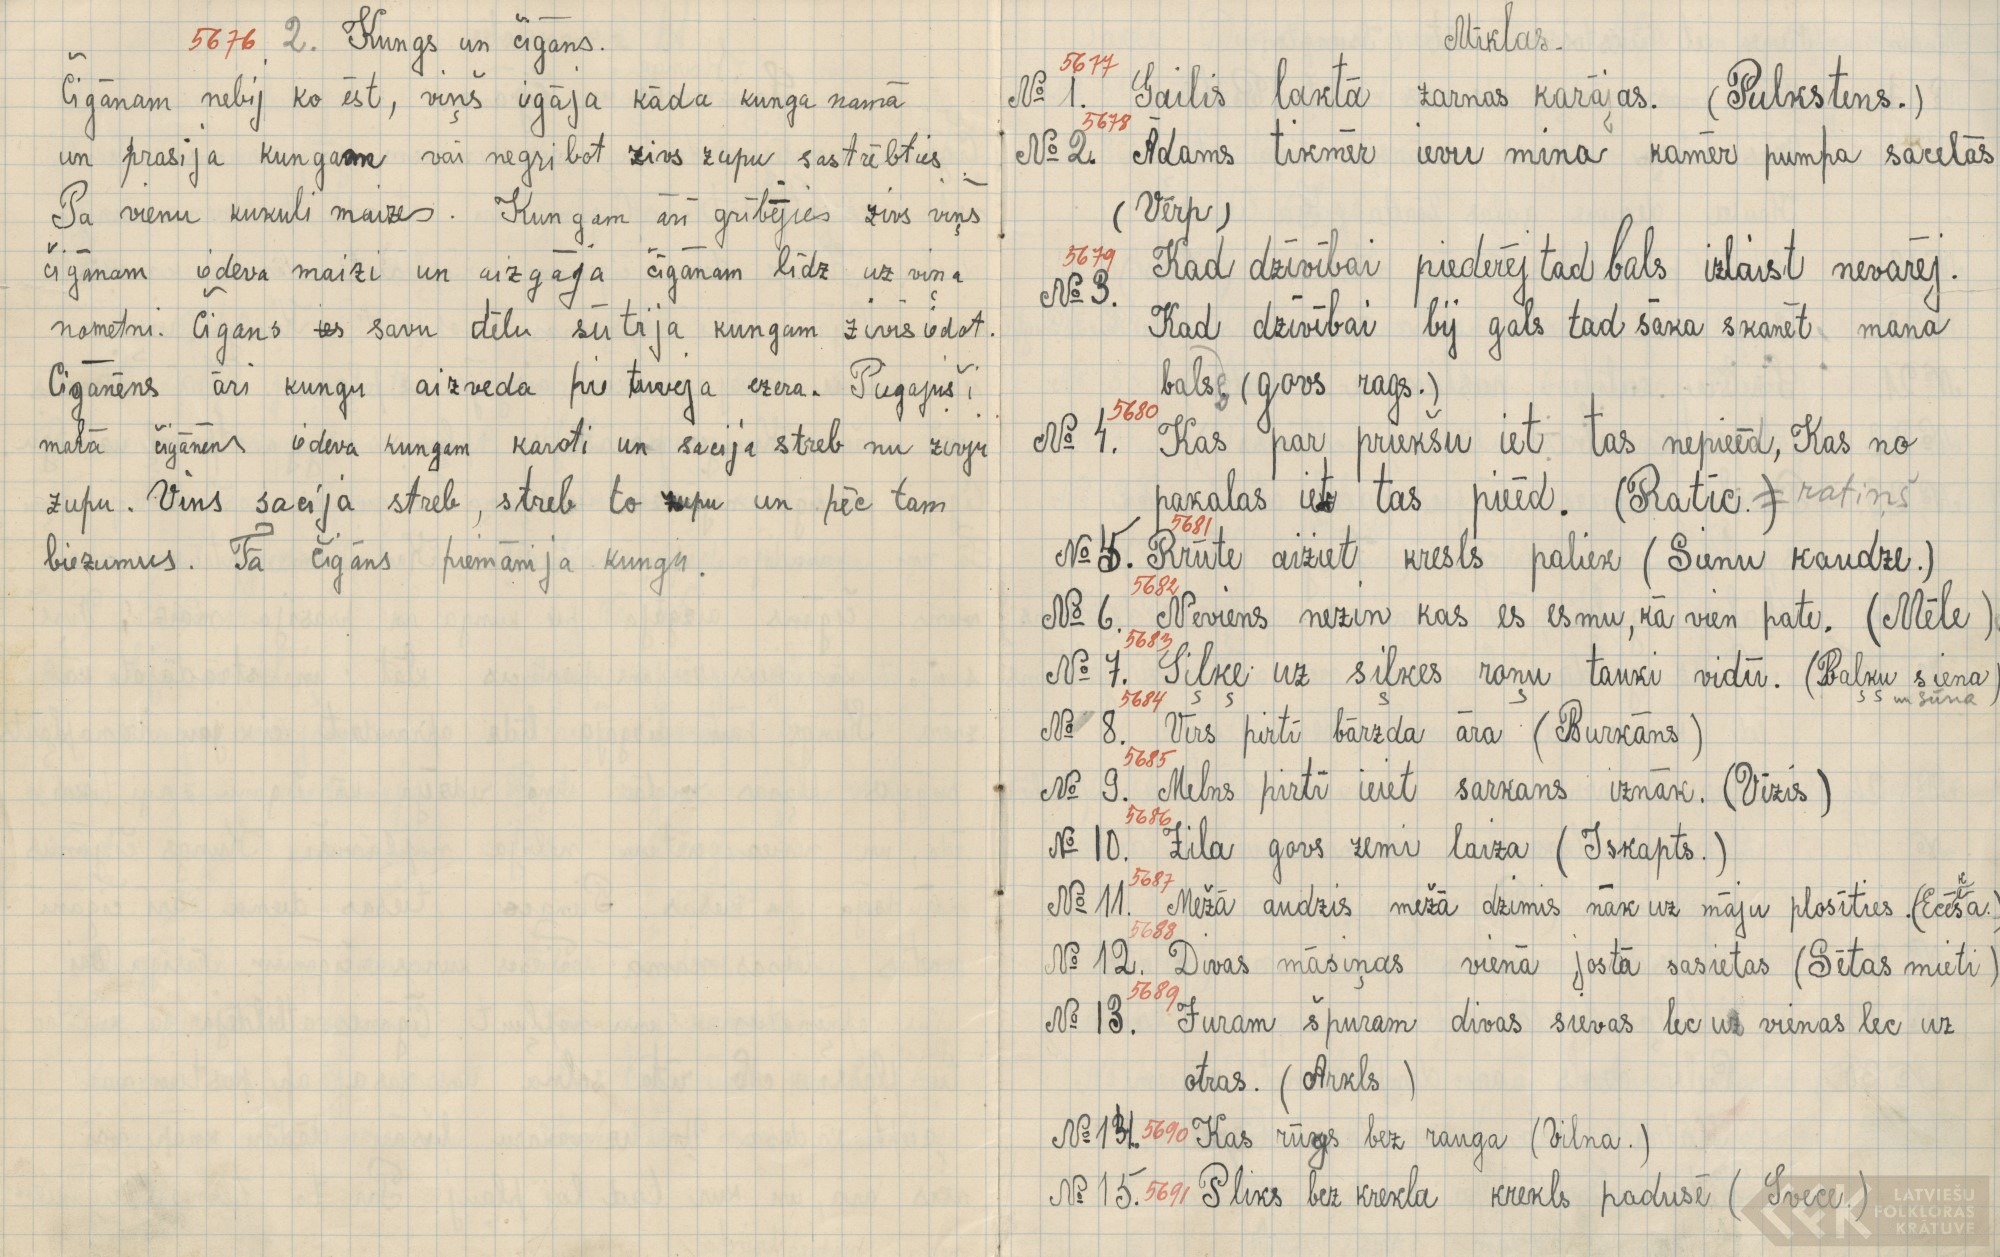 5676 2. Kungs un čigāns.
Čigānam nebij ko ēst, viņš iegāja kāda kunga namā
un prasija kungam vai negribot zivs zupu sastrēbties
Pa vienu kukuli maizes. Kungam ari gribējies zivs viņš
čigānam iedeva maizi un aizgāja čigānam līdz uz viņa
nometni. Čigans savu dēlu sūtija kungam zivis iedot.
Čigānēns āri kungu aizveda pie tuveja ezera. Piegajuši
malā čigānēns iedeva kungam karoti un sacija streb nu zivju
zupu. Viņs sacija streb, streb to zupu un pēc tam
biezumus. Tā čigāns piemānija kungu.
Mīklas.
5677
No 1. Gailis laktā zarnas karājas. (Pulkstens.)
5678
No 2. Ādams tikmēr ievu mina kamēr pumpa sacelās
(Vērp)
5679
No 3. Kad dzīvībai piederēj tad bals izlaist nevarēj.
Kad dzīvībai bij gals tad sāka skanēt mana
bals (govs rags.)
5680
No 4. Kas par priekšu iet tas nepieēd, Kas no
pakalas iet tas pieēd. (Ratic.) = ratiņš
5681
No 5. Krūte aiziet kresls paliek (Sienu kaudze.)
5682
No 6. Neviens nezin kas es esmu, kā vien pate. (Mēle)
5683
No 7. Siļķe uz siļķes roņu tauki vidū. (Baļķu siena)
un sūna
5684
No 8. Vīrs pirtī bārzda āra (Burkāns)
5685
No 9. Melns pirtī ieiet sarkans iznāk. (Vīzis)
5686
No 10. Zila govs zemi laiza (Iskapts.)
5687
No 11. Mežā audzis mežā dzimis nāk uz māju plosīties. (Ecēša.)
5688
No 12. Divas māsiņas vienā jostā sasietas (Sētas mieti)
5689
No 13. Juram špuram divas sievas lec uz vienas lec uz
otras. (Arkls)
No 14. 5690 Kas rūgs bez rauga (Vilna.)
No 15. 5691 Pliks bez krekla krekls padusē (Svece)
LATVIEŠU
FOLKLORAS
KRĀTUVE